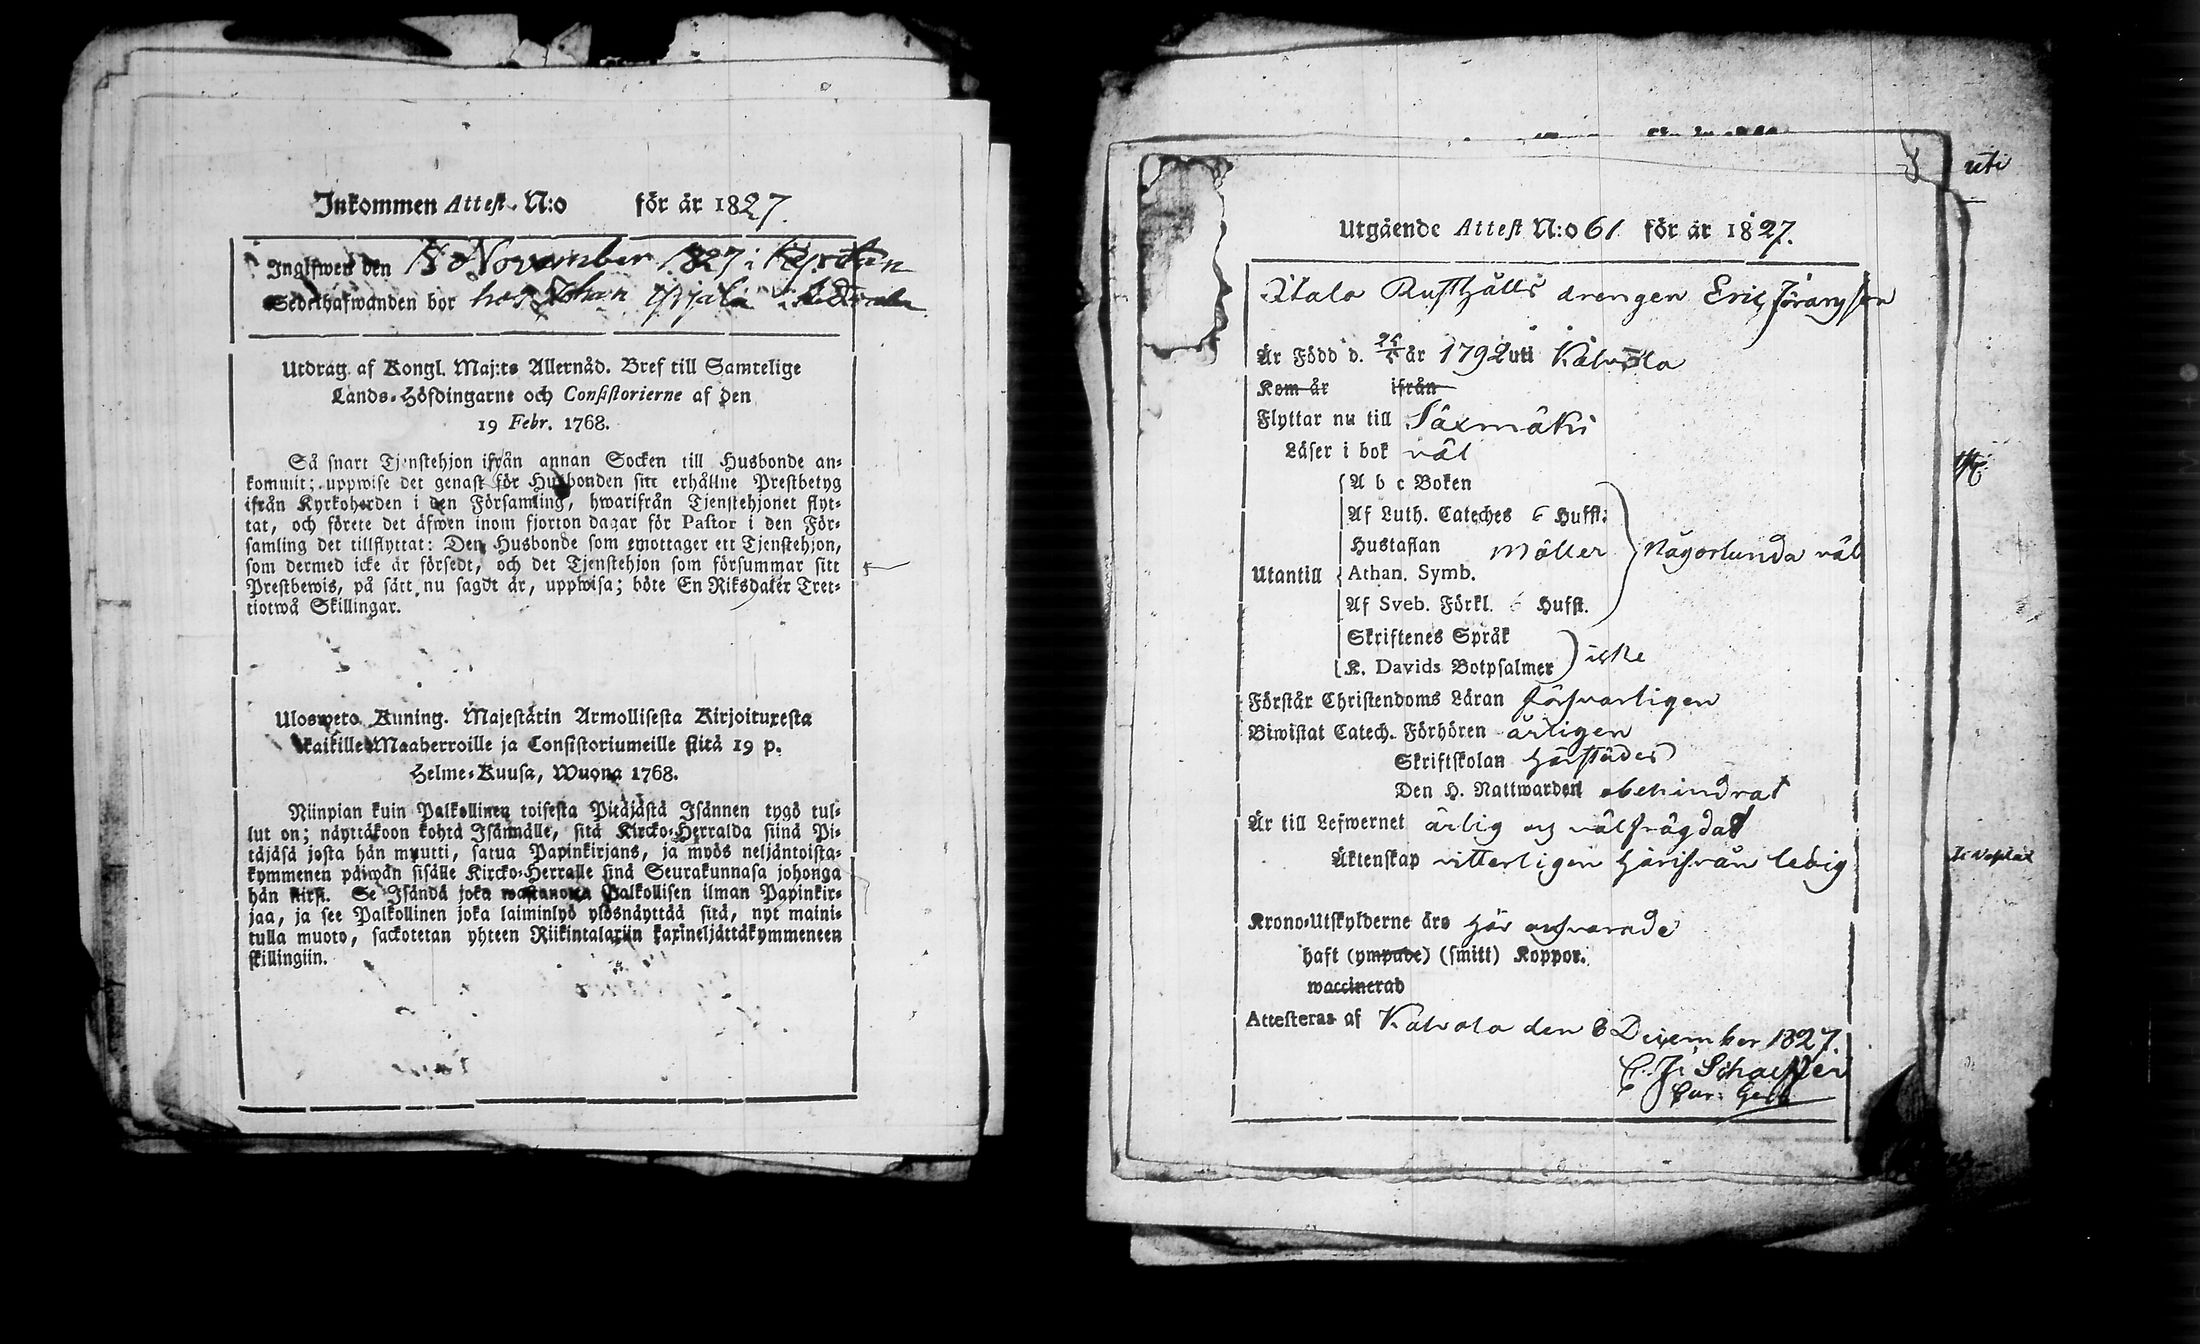 Inkommen Attest. N:o för år 1827.
Inglfwen den November 1827 i
Sedelhafwanden bor hos Johan
Utdrag af Kongl. Maj:ts Allernåd. Bref till Samtelige
Lands-Höfdingarne och Consistorierne af den
19 Febr. 1768.
Så snart Tjenstehjon ifrån annan Socken till Husbonde an-
kommit; uppwise det genast för Husbonden sitt erhållne Prestbetyg
ifrån Kyrkoherden i den Församling, hwarifrån Tjenstehjonet flyt-
tat, och förete det äfwen inom fjorton dagar för Pastor i den För-
samling det tillflyttat: Den Husbonde som emottager ett Tjenstehjon,
som dermed icke är försedt, och det Tjenstehjon som försummar sitt
Prestbewis, på sätt nu sagdt är, uppwisa; böte En Riksdaler Tret-
tiotwå Skillingar.
Ulosweto Kuning. Majestätin Armollisesta Kirjoituxesta
kaikille Maaherroille ja Consistoriumeille siitä 19 p.
Helme-Kuusa, Wuona 1768.
Niinpian kuin Palkollinen toisesta Pitäjästä Isännen tygö tul-
lut on; näyttäkoon kohta Isännälle, sitä Kircko-Herralda siinä Pi-
täjäsä josta hän muutti, satua Papinkirjans, ja myös neljäntoista-
kymmenen päiwän sisälle Kircko-Herralle siinä Seurakunnasa johonga
hän siirsi. Se Isändä joka wastanotta Palkollisen ilman Papinkir-
jaa, ja see Palkollinen joka laiminlyö ylösnäyttää sitä, nyt maini-
tulla muoto, sackotetan yhteen Riikintalariin kaxineljättäkymmeneen
skillingiin.
uti
Utgående Attest N:o 61 för år 1827.
Rusthålls drengen Eric Jöransson
Är Född d. 25/5 år 1792 uti Kalvola
Kom år ifrån
Flyttar nu till Säxmäki
Läser i bok väl
A b c Boken
Af Luth. Cateches 6 Hufst:
Hustaflan Möller Någorlunda väl
Utantill Athan. Symb.
Af Sveb. Förkl. 6 Hufst.
Skriftenes Språk
K. Davids Botpsalmer icke
Förstår Christendoms Läran försvarligen
Biwistat Catech. Förhören årligen
Skriftskolan härstädes
Den H. Nattwarden obehindrat
Är till Lefwernet ärlig och välfrägdad
Äktenskap vitterligen härifrån ledig
Krono-Utskylderne äro här ansvarade
haft (ympade) (smitt) Koppor.
waccinerad
Attesteras af Kalvola den 8 December 1827.
C. J. Schaeffer